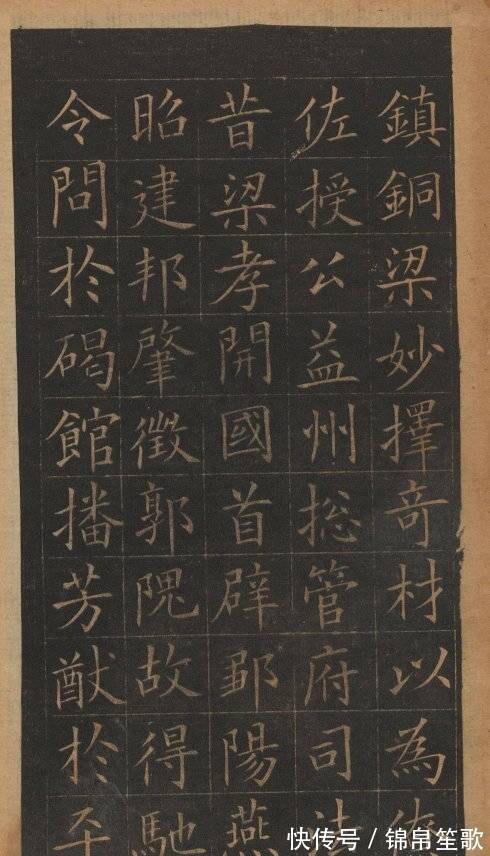 鎮銅梁妙擇竒材以為
佐授公益州揔管府司法
昔梁孝開國首辟鄒陽燕
昭建邦肇徵郭隗故得馳
令問於碣館播芳猷於平
快传号 / 锦帛笙歌